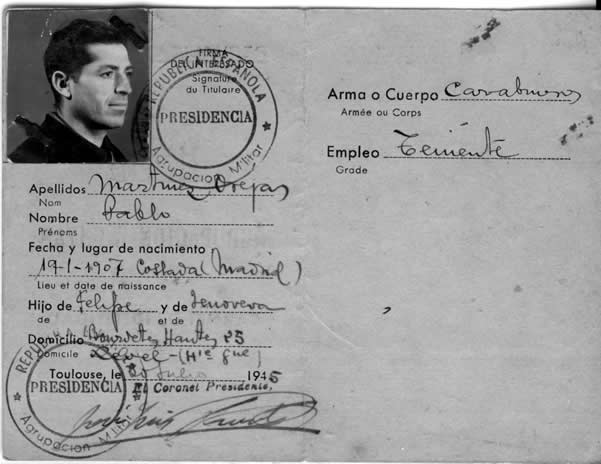 FIRMA
DEL INTERESADO
Signature
du Titulaire
REPUBLICA ESPAÑOLA
PRESIDENCIA
Agrupacion Militar
Apellidos Martinez Orejas
Nom
Nombre Pablo
Prénoms
Fecha y lugar de nacimiento
19-1-1907 Coslada (Madrid)
Lieu et date de naissance
Hijo de Felipe y de Jenoveva
de et de
Domicilio Bourdetes Hautes 25
Domicile (Hte Gne)
Toulouse, le 20 Julio 1945
El Coronel Presidente,
REPUBLICA
PRESIDENCIA
Agrupacion Militar
Arma o Cuerpo Carabineros
Armée ou Corps
Empleo Teniente
Grade